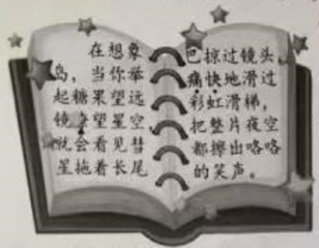 在想象
岛，当你举
起糖果望远
镜望星空，
就会看见彗
星拖着长尾
巴掠过镜头，
痛快地滑过
彩虹滑梯，
把整片夜空
都擦出咯咯
的笑声。